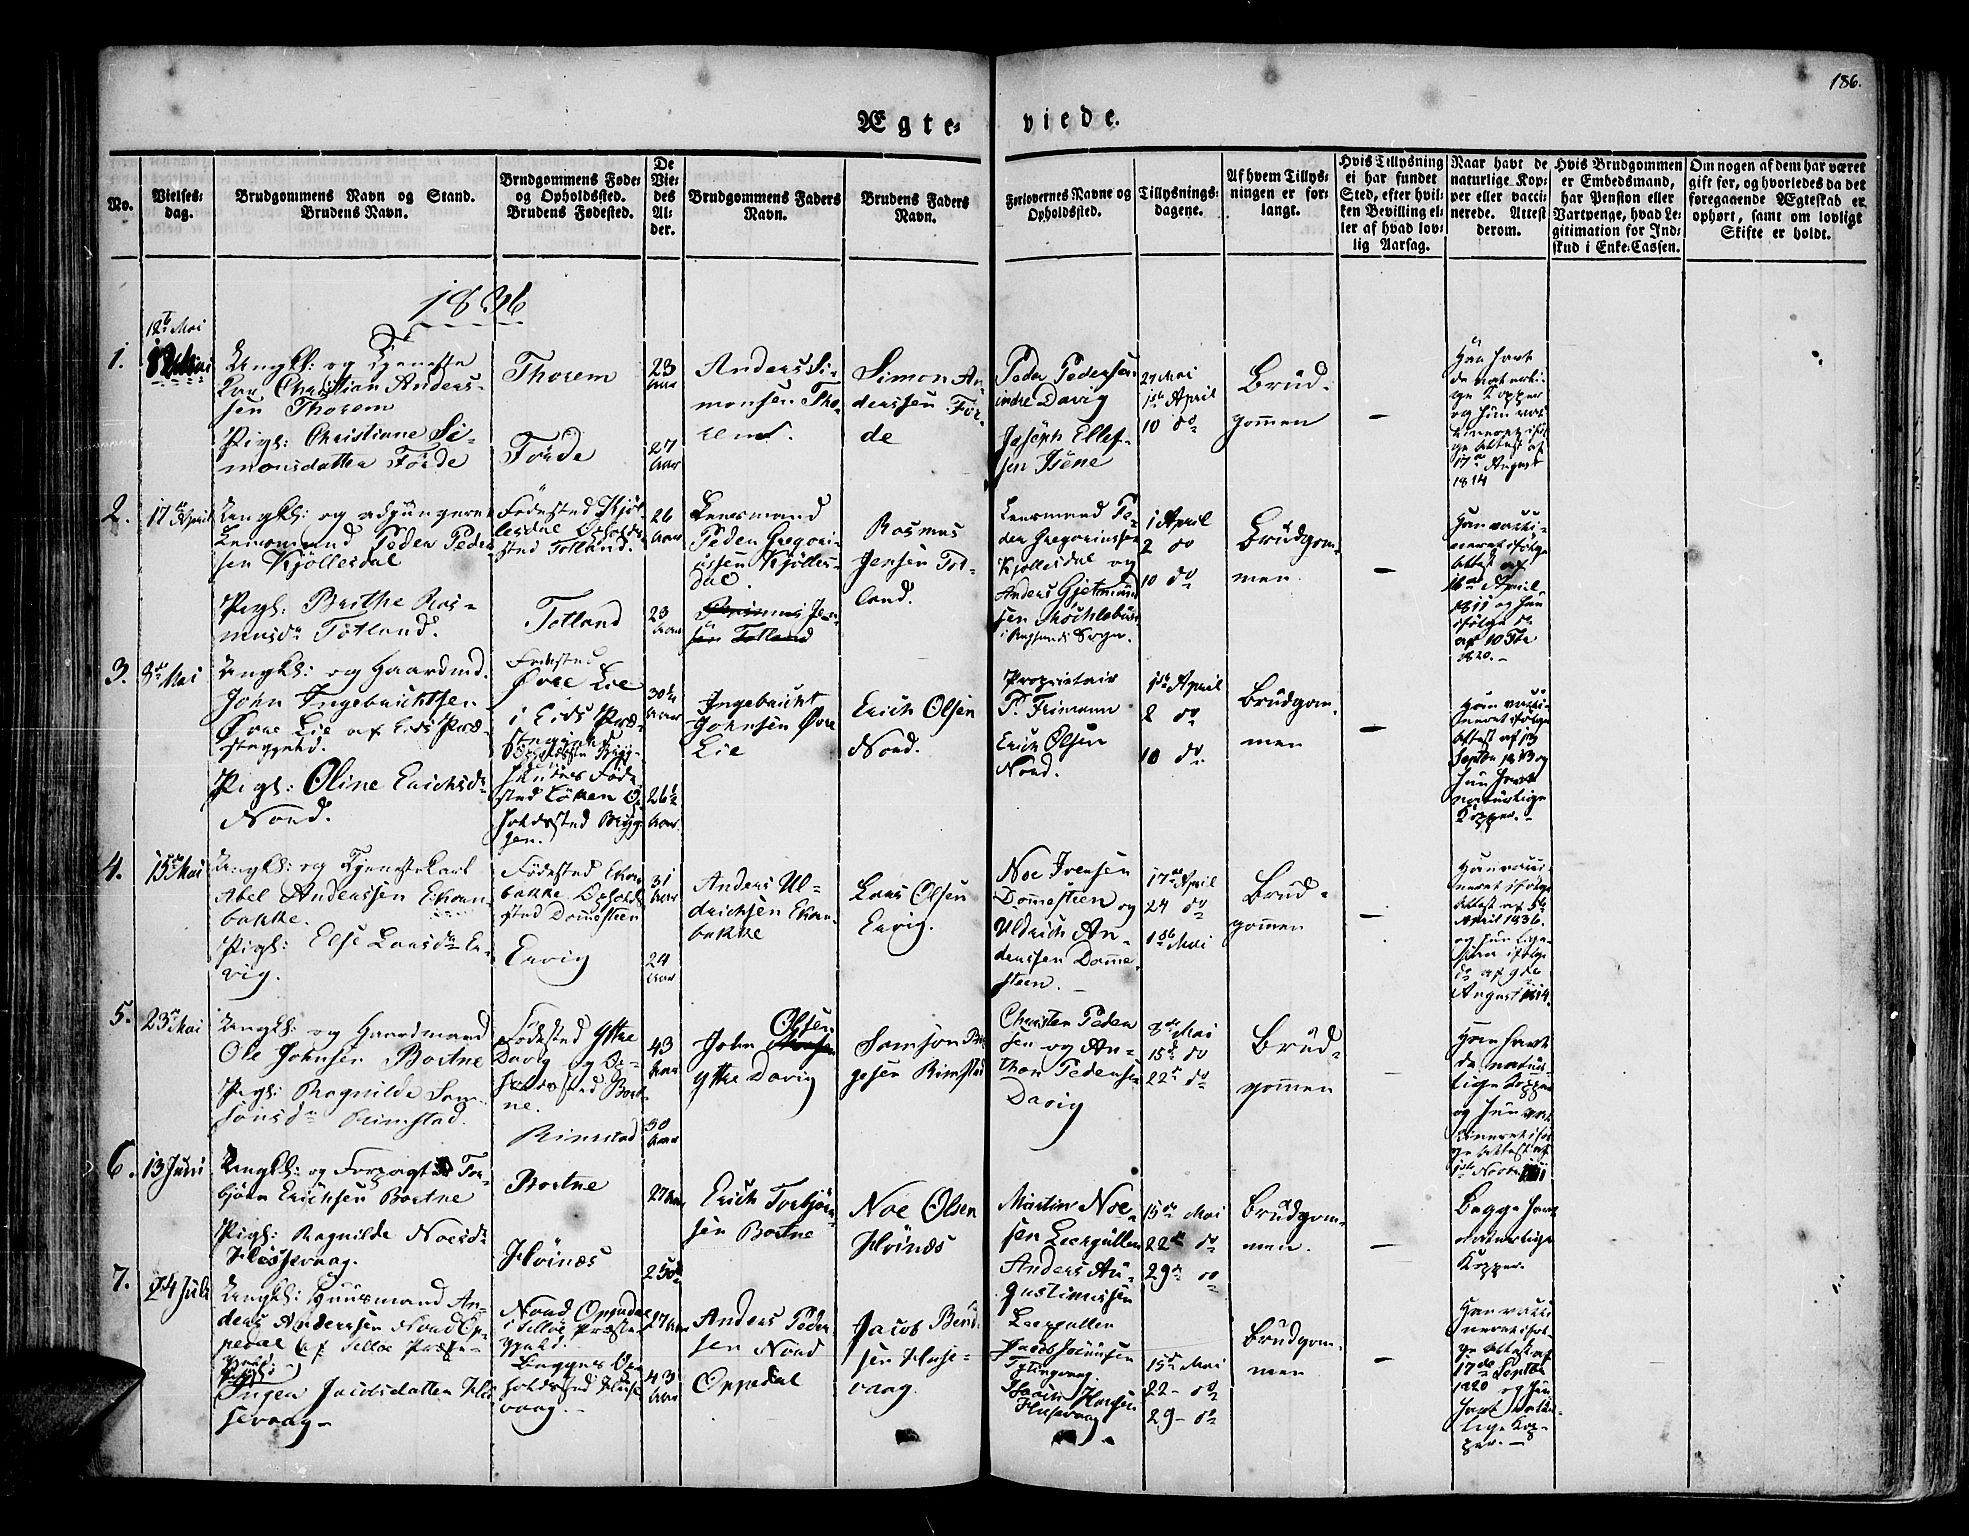 186.
Ægte- viede.
No.
Vielses-
dag.
Brudgommens Navn og Stand.
Brudens Navn.
Brudgommens Føde-
og Opholdssted.
Brudens Fødested.
De
Vie-
des
Al-
der.
Brudgommens Faders
Navn.
Brudens Faders
Navn.
Forlovernes Navne og
Opholdssted.
Tillysnings-
dagene.
Af hvem Tillys-
ningen er for-
langt.
Hvis Tillysning
ei har fundet
Sted, efter hvil-
ken Bevilling el-
ler af hvad lov-
lig Aarsag.
Naar havt de
naturlige Kop-
per eller vacci-
nerede. Attest
derom.
Hvis Brudgommen
er Embedsmand,
har Pension eller
Vartpenge, hvad Le-
gitimation for Ind-
skud i Enke-Cassen.
Om nogen af dem har været
gift før, og hvorledes da det
foregaaende Ægteskab er
ophørt, samt om lovligt
Skifte er holdt.
1836
1.
18de Mai
Ungkl: og Tjeneste
Karl Christian Anders-
sen Thorem
Pigl: Christiane Si-
monsdatter Förde
Thorem
Förde
23
Aar
27
Aar
Anders Si-
monsen Tho-
rem.
Simon An-
derssen För-
de
Peder Pedersen
indre Davig
Joseph Ellef-
sen Isene
1ste April
10 do
Brüd-
gommen
–
Han havt
de naturli-
ge Kopper
og hun vac-
cineret iföl-
ge Attest af
17de August
1814
2.
17de April
Ungkl: og adjungeret
Lensmand Peder Peder-
sen Kjöllesdal
Pigl: Brithe Ras-
musdr Totland.
Födested Kjöl-
lesdal Opholds-
sted Totland.
Totland
26
Aar
23
Aar
Lensmand
Peder Gregori-
ussen Kjölles-
dal.
Rasmus
Jensen Tot-
land.
Lensmand Pe-
der Gregoriussen
Kjöllesdal og
Anders Gjetmund-
sen
1 April
2 do
10 do
Brüdgom-
men.
–
Han vacci-
neret ifölge
Attest af
16de April
1811 og hun
ifölge do
af 10 Octbr
1820.–
3.
8de Mai
Ungkl: og Gaardmd.
John Ingebrichtsen
Övre Lie af Eids Præ-
stegjeld.
Pigl: Oline Erichsdr
Nord.
Födested
Övre Lie
i Eids Præ-
stegjeld
Födested
30 1/4
Aar
26 1/2
Aar
Ingebricht
Johnsen Övre
Lie
Erich Olsen
Nord.
Proprietair
P. Frimann
Erich Olsen
Nord.
1ste April
2 do
10 do
Brüdgom-
men
–
Han vacci-
neret ifölge
Attest af 13
Septbr 1813 og
hun havt
naturlige
Kopper.–
4.
15de Mai
Ungkl: og Tjenestekarl
Abel Anderssen Ekorn-
bakke.
Pigl: Else Larsdr Er-
vig.
Födested Ekorn-
bakke Opholds-
sted Dommesteen
Ervig
31
Aar
24
Aar
Anders Ul-
drichsen Ekorn-
bakke
Lars Olsen
Ervig.
Noe Iversen
Dommesteen og
Uldrich An-
derssen Domme-
steen.
17de April
24 do
1ste Mai
Brüd-
gommen
–
Han vacci-
neret ifölge
Attest af 5te
April 1836.
og hun lige-
saa ifölge
do af 9de
August 1814.
5.
23de Mai
Ungkl: og Gaardmand
Ole Johnsen Bortne
Pigl: Ragnilde Sam-
sonsdr Rimstad.
Födested Yttre
Davig og Op-
holdssted Bort-
ne.
Rimstad
43
Aar
30
Aar
John Olsen
Yttre Davig
Samson
Rimstad
Christen Peder-
sen og An-
thon Pedersen
Davig
8de Mai
15de do
22de do
Brüd-
gommen
–
Han havt
de natur-
lige Kopper
og hun vac-
cineret iföl-
ge Attest af
1ste Novbr 1811
6.
13 Juni
Ungkl: og Forpagter Tor-
björn Erichsen Bortne
Pigl: Ragnilde Noesdr
Husevaag.
Bortne
Höinæs
27 Aar
25
Erich Torbjörn-
sen Bortne
Noe Olsen
Höinæs
Martin Noe-
sen Leergullen
Anders Au-
gustinussen
Leergullen
15de Mai
22de do
29de do
Brüdgom-
men.
–
Begge havt
naturlige
Kopper.
7.
24 Juli
Ungkl: Huusmand An-
ders Anderssen Nord Op-
pedal af Selløe Præste-
gjeld:
Inger Jacobsdatter Hu-
sevaag –
Nord Oppedal
i Selløe Præste-
gjeld.
Begges Op-
holdssted Huse-
vaag.
27 Aar
43
Aar
Anders Peder-
sen Nord
Oppedal
Jacob
sen Huse-
vaag.
Husevaag
15de Mai
22– do
29– do
Brüdgom-
men
–
Han vacci-
neret iföl-
ge Attest af
17de Septbr
1820 og hun
havt natur-
lige Kop-
per.–